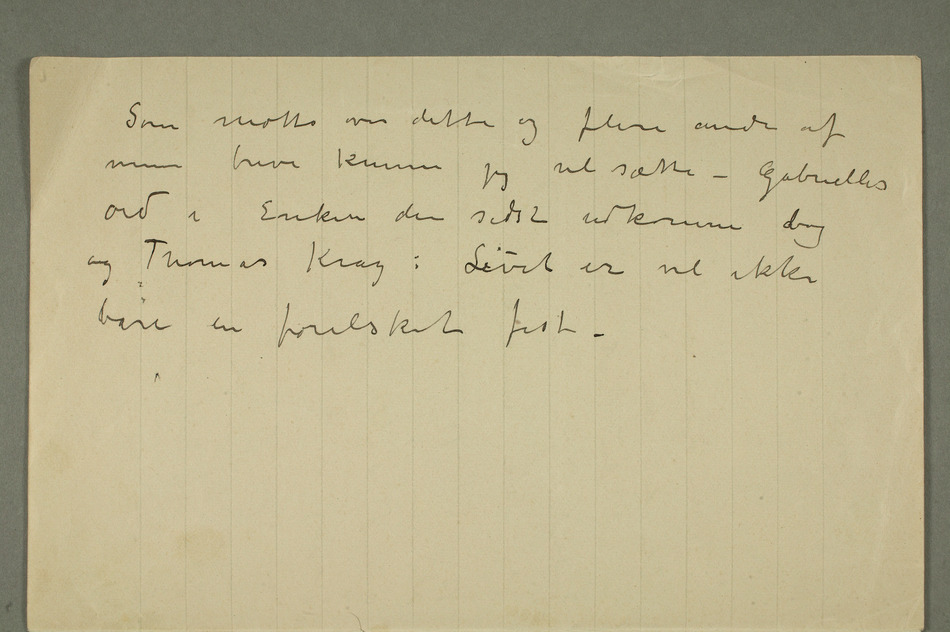 Som motto over dette og flere andre af
mine breve kunne jeg vel sætte – Gabrielles
ord i Enken den sidst udkomne bog
ag Thomas Krag : Livet er vel ikke
bare en forelsket fest –